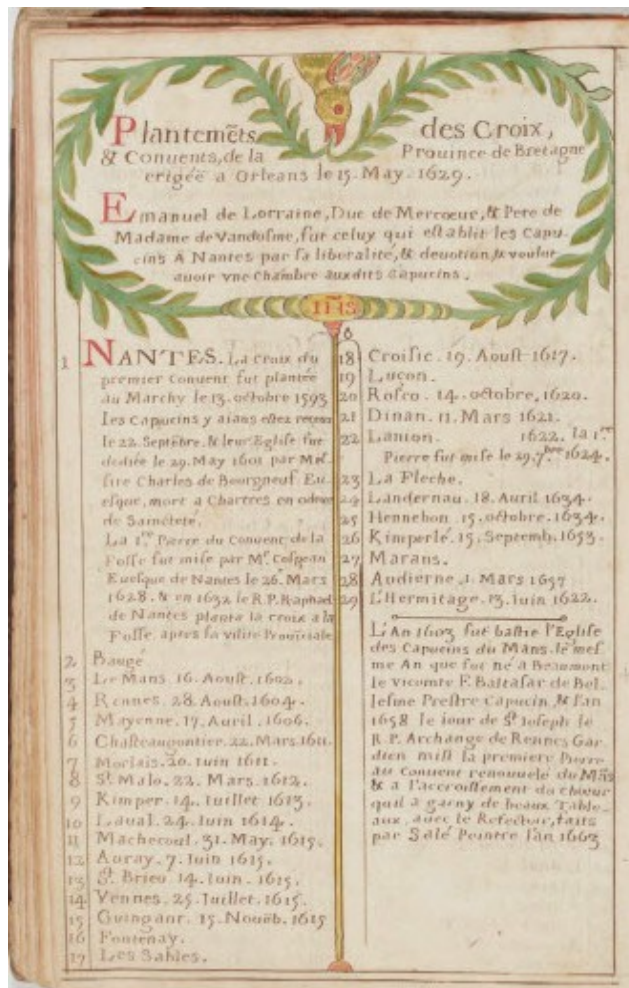 Plantemẽts des Croix,
& Conuents, de la Prouince de Bretagne
erigéé a Orleans le 15. May. 1629.
Emanuel de Lorraine, Duc de Mercœur, & Pere de
Madame de Vandosme, fut celuy qui establit les Capu-
cins A Nantes par sa liberalité, & deuotion, & voulut
auoir vne Chambre auxdits Capucins.
IHS
1 NANTES. La Croix du
premier Conuent fut plantée
au Marchy le 13. octobre 1593
Les Capucins y aians estez receus
le 22. Septẽbre. & leur Eglise fut
dediée le 29. May 1601 par Mes
sire Charles de Bourgneuf Eu-
esque, mort a Chartres en odeur
de Saincteté.
La 1.re Pierre du Conuent de la
Fosse fut mise par Mr. Cospean
Euesque de Nantes le 26. Mars
1628. & en 1632 le R.P. Raphael
de Nantes planta la croix a la
Fosse. apres sa visite Prouĩciale
2 Baugé
3 Le Mans. 16. Aoust. 1602.
4 Rennes. 28. Aoust. 1604.
5 Mayenne. 17. Auril. 1606.
6 Chasteaugontier. 22. Mars. 1611.
7 Morlais. 20. Iuin 1611.
8 St. Malo. 22. Mars. 1612.
9 Kimper. 14. Iuillet 1613.
10 Laual. 24. Iuin 1614.
11 Machecoul. 31. May. 1615.
12 Auray. 7. Iuin 1615.
13 St. Brieu 14. Iuin. 1615.
14 Vennes. 25. Iuillet. 1615.
15 Guingant. 15. Nouẽb. 1615
16 Fontenay.
17 Les Sables.
18 Croisic. 19. Aoust. 1617.
19 Luçon.
20 Rosco. 14. octobre, 1620.
21 Dinan. 11. Mars 1621.
22 Lanion. 1622. la 1.re
Pierre fut mise le 29. 7.bre 1624.
23 La Fleche.
24 Landernau. 18. Auril. 1634.
25 Hennebon. 15. octobre. 1634.
26 Kimperlé. 15. Septemb. 1653.
27 Marans.
28 Audierne. 1. Mars 1657
29 L'Hermitage. 13. Iuin 1622.
L'An 1603 fut bastie l'Eglise
des Capucins du Mans. le mes
me An que fut né a Beaumont
le vicomte F. Baltasar de Bel.
lesme Prestre Capucin, & l'an
1658 le iour de St Ioseph le
R.P. Archange de Rennes Gar
dien mist la premiere Pierre
au Conuent renouuelé du Mãs
& a l'accroissement du chœur
quil a garny de beaux Table-
aux, auec le Refectoir, faits
par Salé Peintre l'an 1663